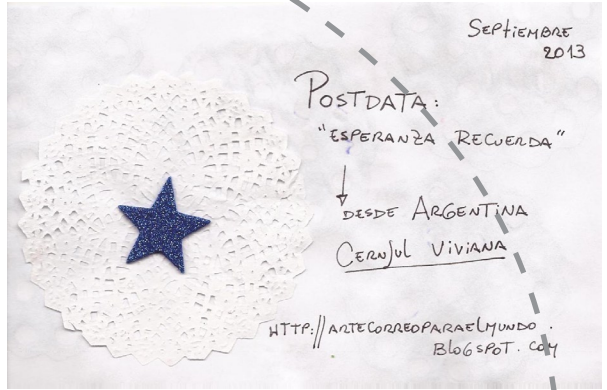 Septiembre
2013
POSTDATA:
"ESPERANZA RECUERDA"
DESDE ARGENTINA
CERNJUL VIVIANA
HTTP://ARTECORREOPARAELMUNDO.
BLOGSPOT.COM